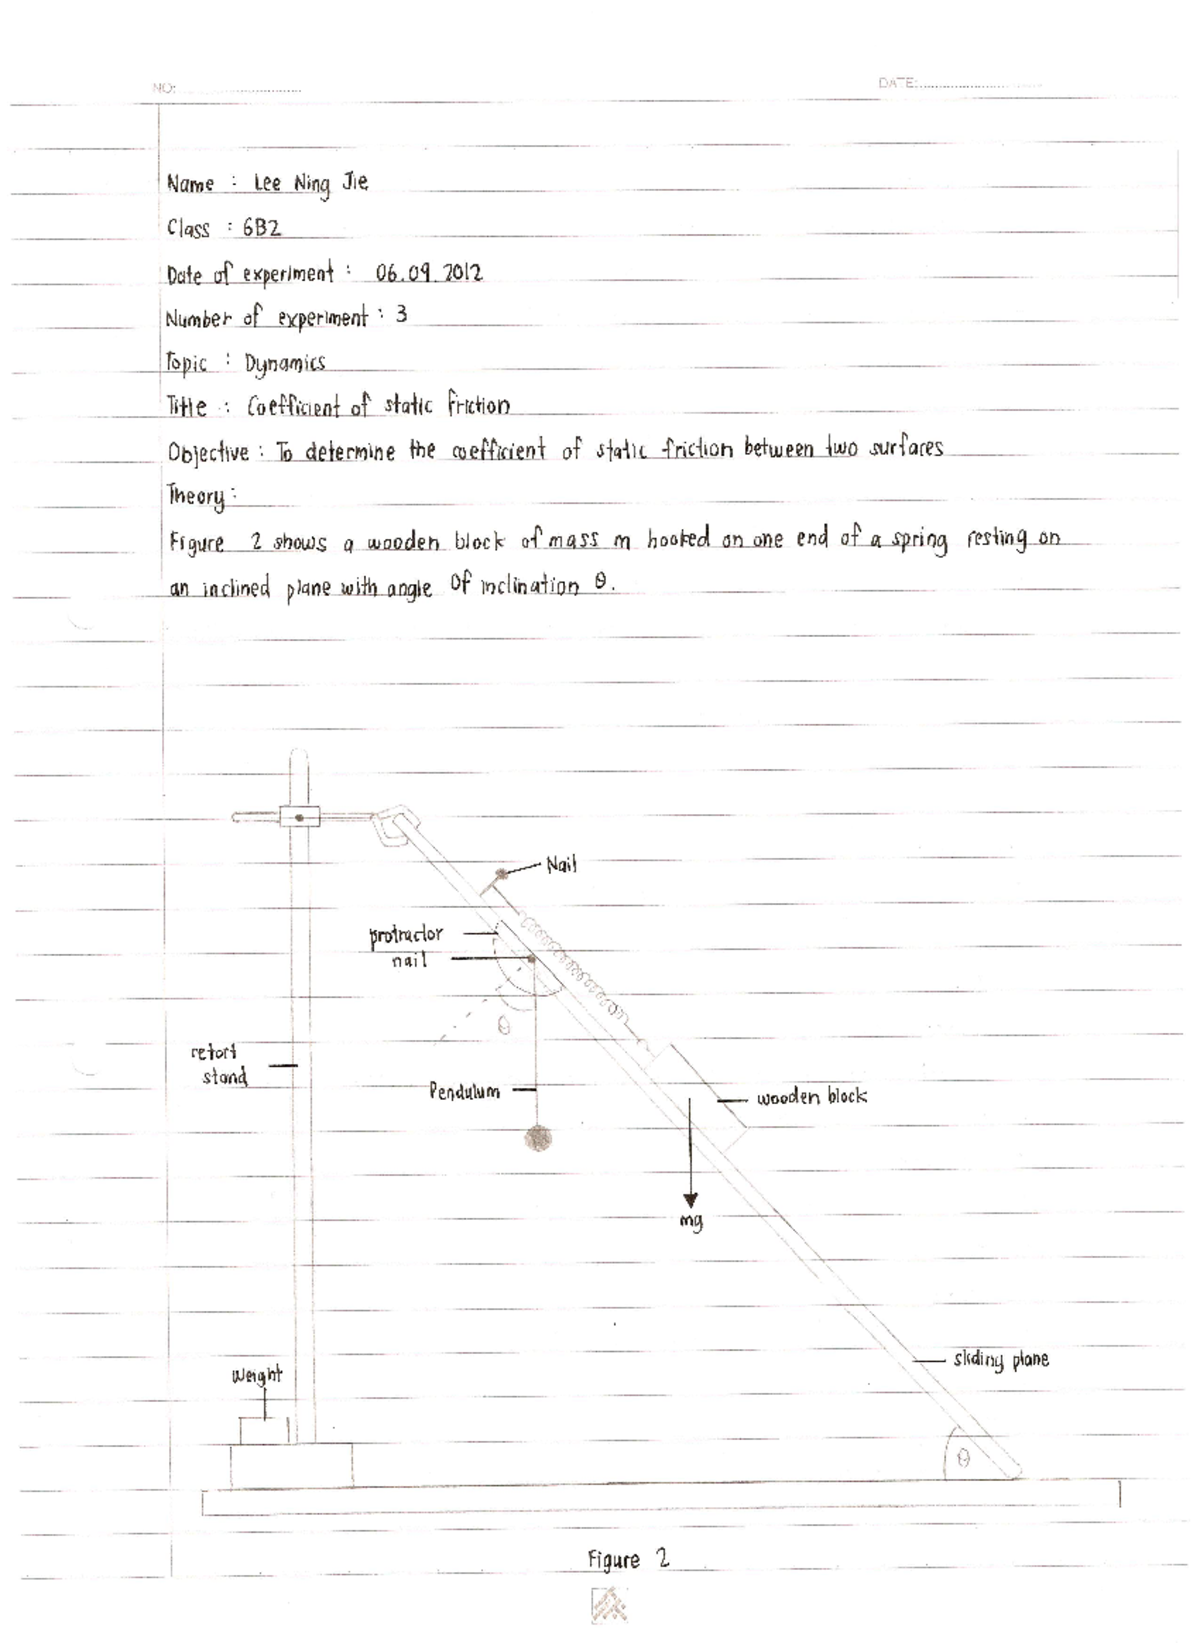 NO:
DATE:
Name : Lee Ning Jie
Class : 6B2
Date of experiment : 06.09.2012
Number of experiment : 3
Topic : Dynamics
Title : Coefficient of static friction
Objective : To determine the coefficient of static friction between two surfaces
Theory :
Figure 2 shows a wooden block of mass m hooked on one end of a spring resting on
an inclined plane with angle of inclination θ.
Nail
protractor
nail
θ
retort
stand
Pendulum
wooden block
mg
sliding plane
Weight
θ
Figure 2